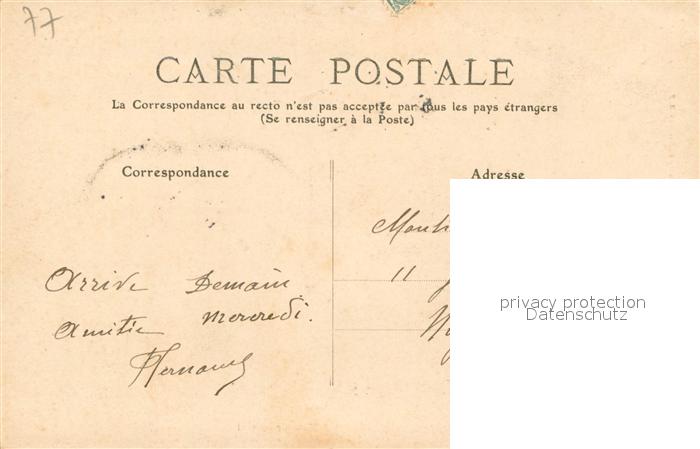 77
CARTE POSTALE
La Correspondance au recto n'est pas acceptée par tous les pays étrangers
(Se renseigner à la Poste)
Correspondance
Adresse
Arrive Demain
Mercredi.
Amitié
11
privacy protection
Datenschutz